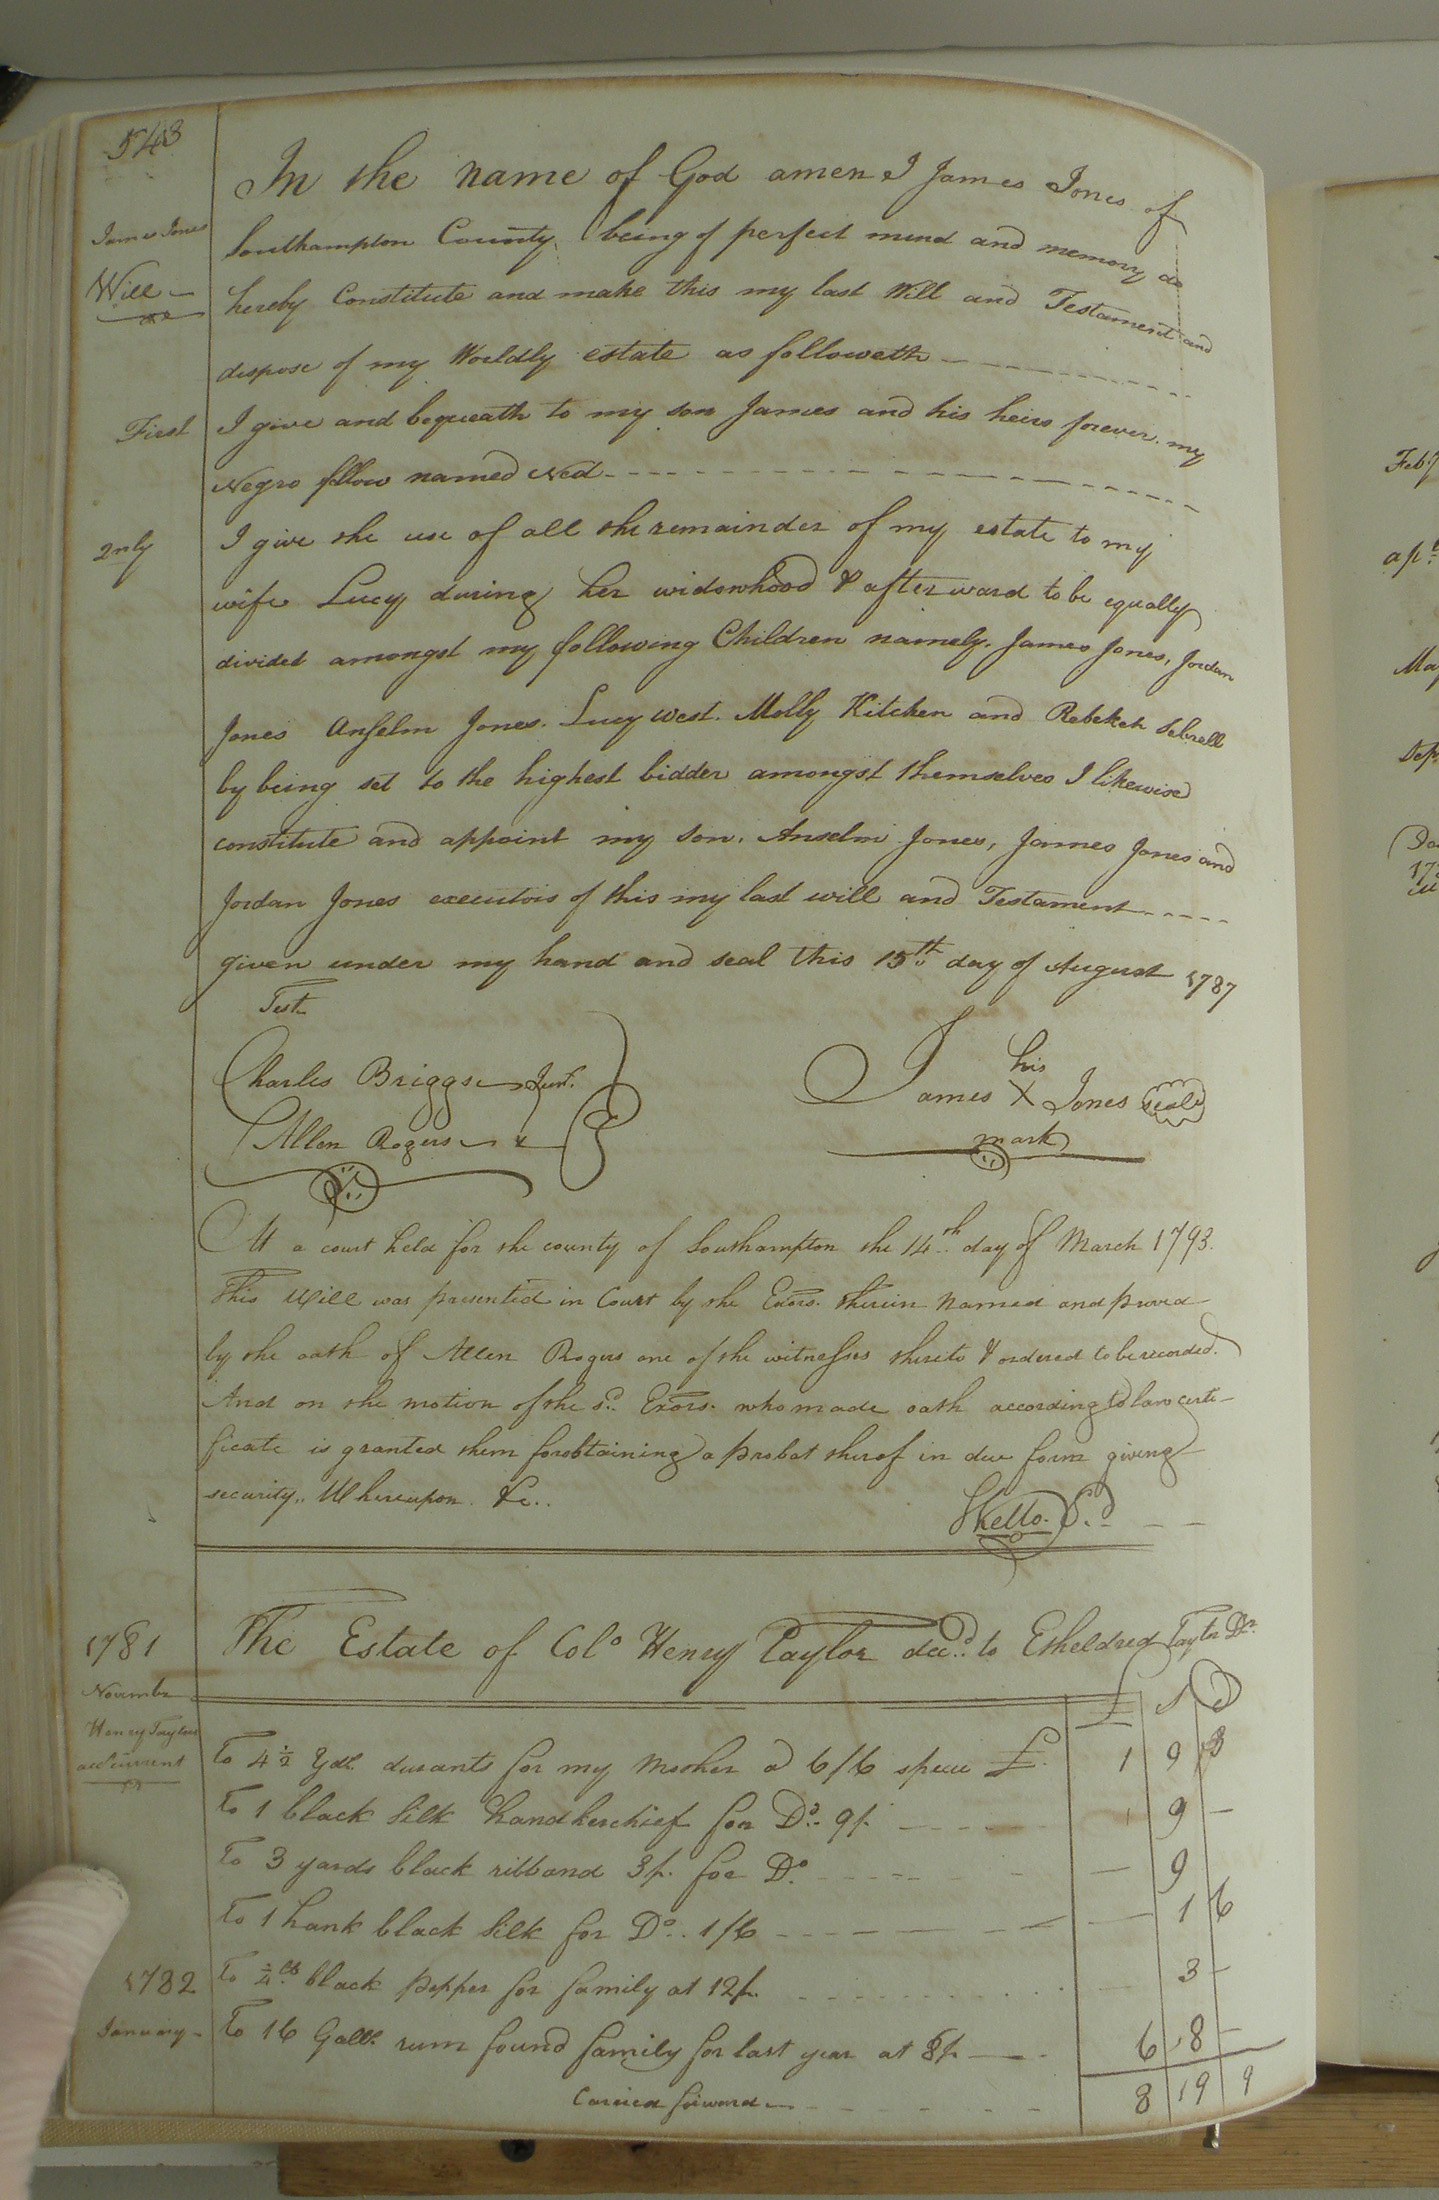 543
In the name of God amen I James Jones of
James Jones
Southampton County being of perfect mind and memory do
Will
hereby Constitute and make this my last Will and Testament and
dispose of my Worldly estate as followeth
First
I give and bequeath to my son James and his heirs forever. my
Negro fellow named Ned
2nly
I give the use of all the remainder of my estate to my
wife Lucy during her widowhood & afterward to be equally
divided amongst my following Children namely. James Jones, Jordan
Jones Anselm Jones. Lucy West. Molly Kitchen and Rebekah Sebrell
by being set to the highest bidder amongst themselves I likewise
constitute and appoint my son. Anselm Jones, James Jones and
Jordan Jones executors of this my last will and Testament
given under my hand and seal this 15th day of August 1787
Test
Charles Briggs Junr.
his
James X Jones seal
Allen Rogers
mark
At a court held for the county of Southampton the 14th day of March 1793.
This Will was presented in Court by the Exors. therein named and proved
by the oath of Allen Rogers one of the witnesses thereto & ordered to be recorded.
And on the motion of the sd. Exors. who made oath according to law certi-
ficate is granted them for obtaining a probat thereof in due form giving
security,, Whereupon &c..
SKello. Cd
1781
The Estate of Colo Henry Taylor decd. to Etheldred Taylor Dr.
November
£ S D
Henry Taylors
accurrent
To 4 1/2 Yds. durants for my Mother @ 6/6 specie £ 1 9 3
To 1 black Silk handkerchief for Do. 9/. 9 —
To 3 yards black ribband 3/. for Do. — 9
To 1 hank black Silk for Do.. 1/6 — 1 6
1782
To 1/4 lb black pepper for family at 12/. 3 —
January
To 16 Galls. rum found family for last year at 8/. 6 8 —
Carried forward 8 19 9
Feby
apl
May
Sep